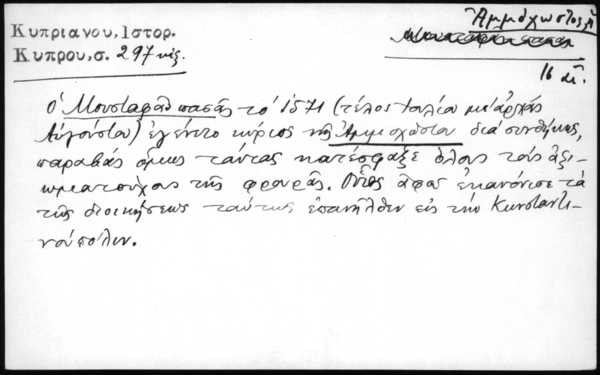 Κυπριανου, Ιστορ.
Κυπρου, σ. 297 κἑξ.
Ἀμμόχωστος
16 αἰ.
Ὁ Μουσταφᾶ πασᾶς τὸ 1571 (τέλος Ἰουλίου μὲ ἀρχὰς
Αὐγούστου) ἐγένετο κύριος τῆς Ἀμμοχώστου διὰ συνθήκης,
παραβὰς ὅμως ταύτας κατέσφαξε ὅλους τοὺς ἀξι-
ωματούχους τῆς φρουρᾶς. Οὗτος ἀφοῦ ἐκανόνισε τὰ
τῆς διοικήσεως ταύτης ἐπανῆλθεν εἰς τὴν Κωνσταντι-
νούπολιν.